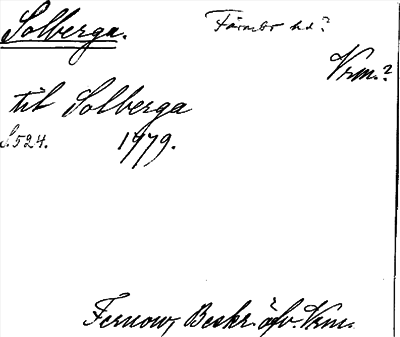 Solberga.
Färnebo hd?
Vrm.?
til Solberga
S. 524. 1779.
Fernow, Beskr. öfv. Vrm.